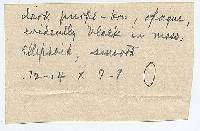 dark purple-brn, opaque,
evidently black in mass,
ellipsoid, smooth
12-14 x 7-8